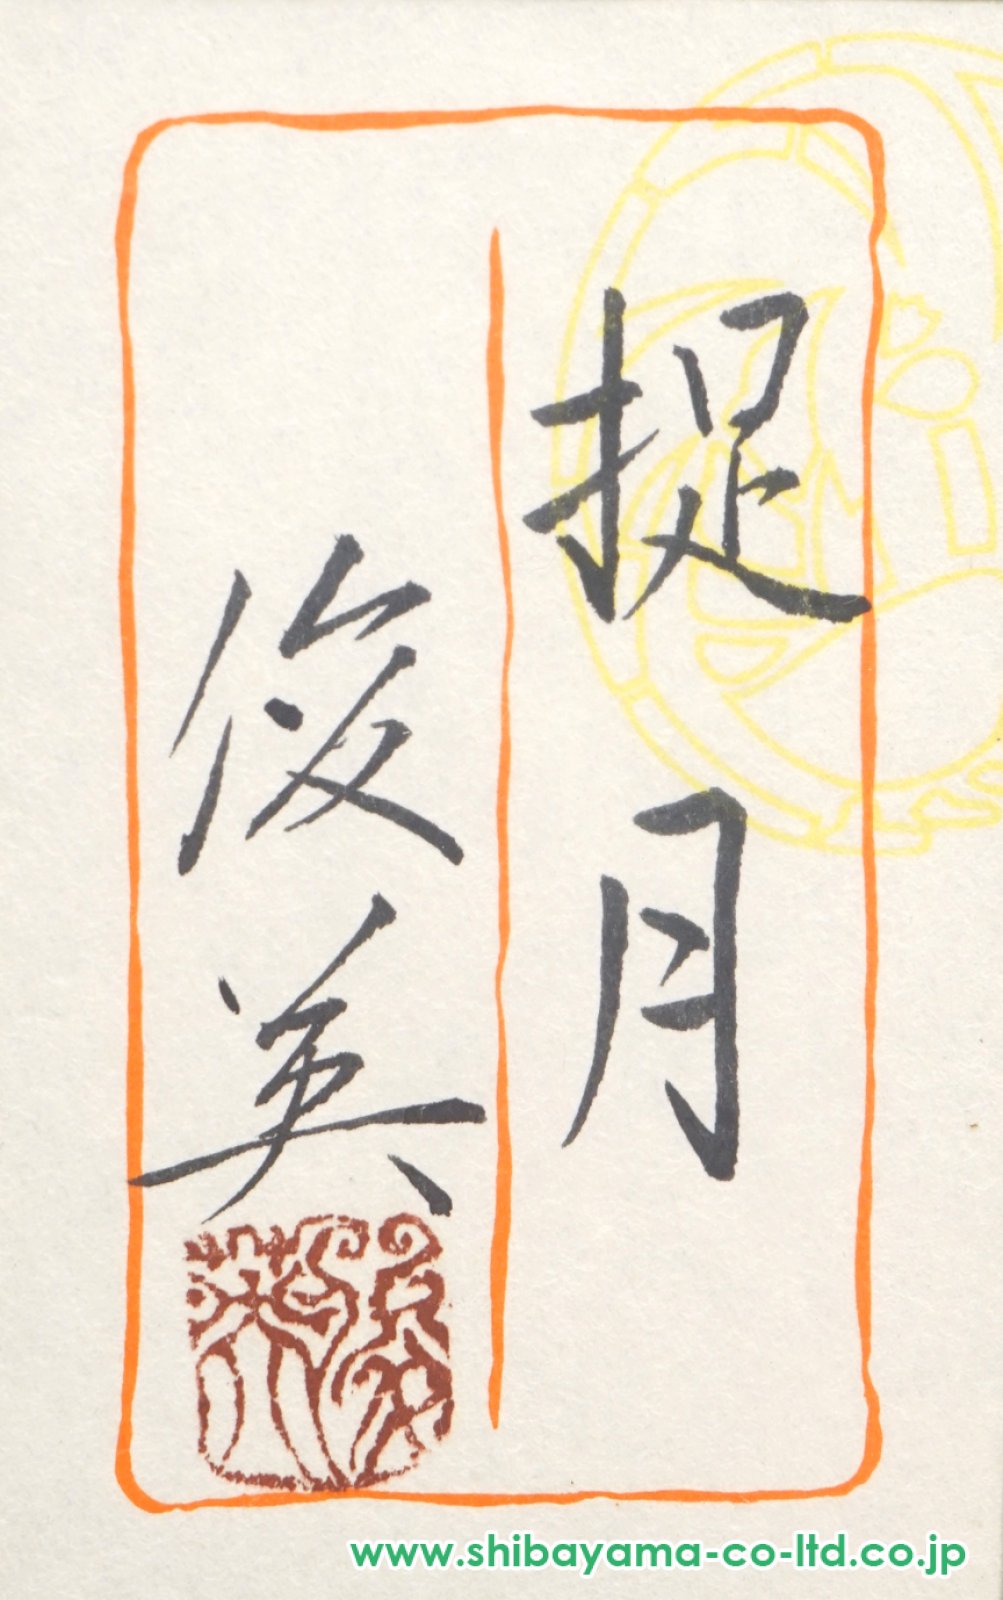 捉月
俊英
www.shibayama-co-ltd.co.jp